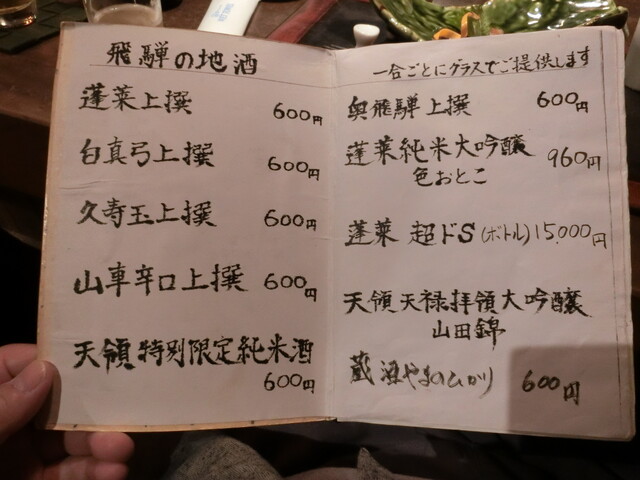 飛騨の地酒
蓬莱上撰
600円
白真弓上撰
600円
久寿玉上撰
600円
山車辛口上撰
600円
天領特別限定純米酒
600円
一合ごとにグラスでご提供します
奥飛騨上撰
600円
蓬莱純米大吟醸
960円
色おとこ
蓬莱 超ドS(ボトル)15,000円
天領天禄拝領大吟醸
山田錦
蔵酒やまのひかり 600円